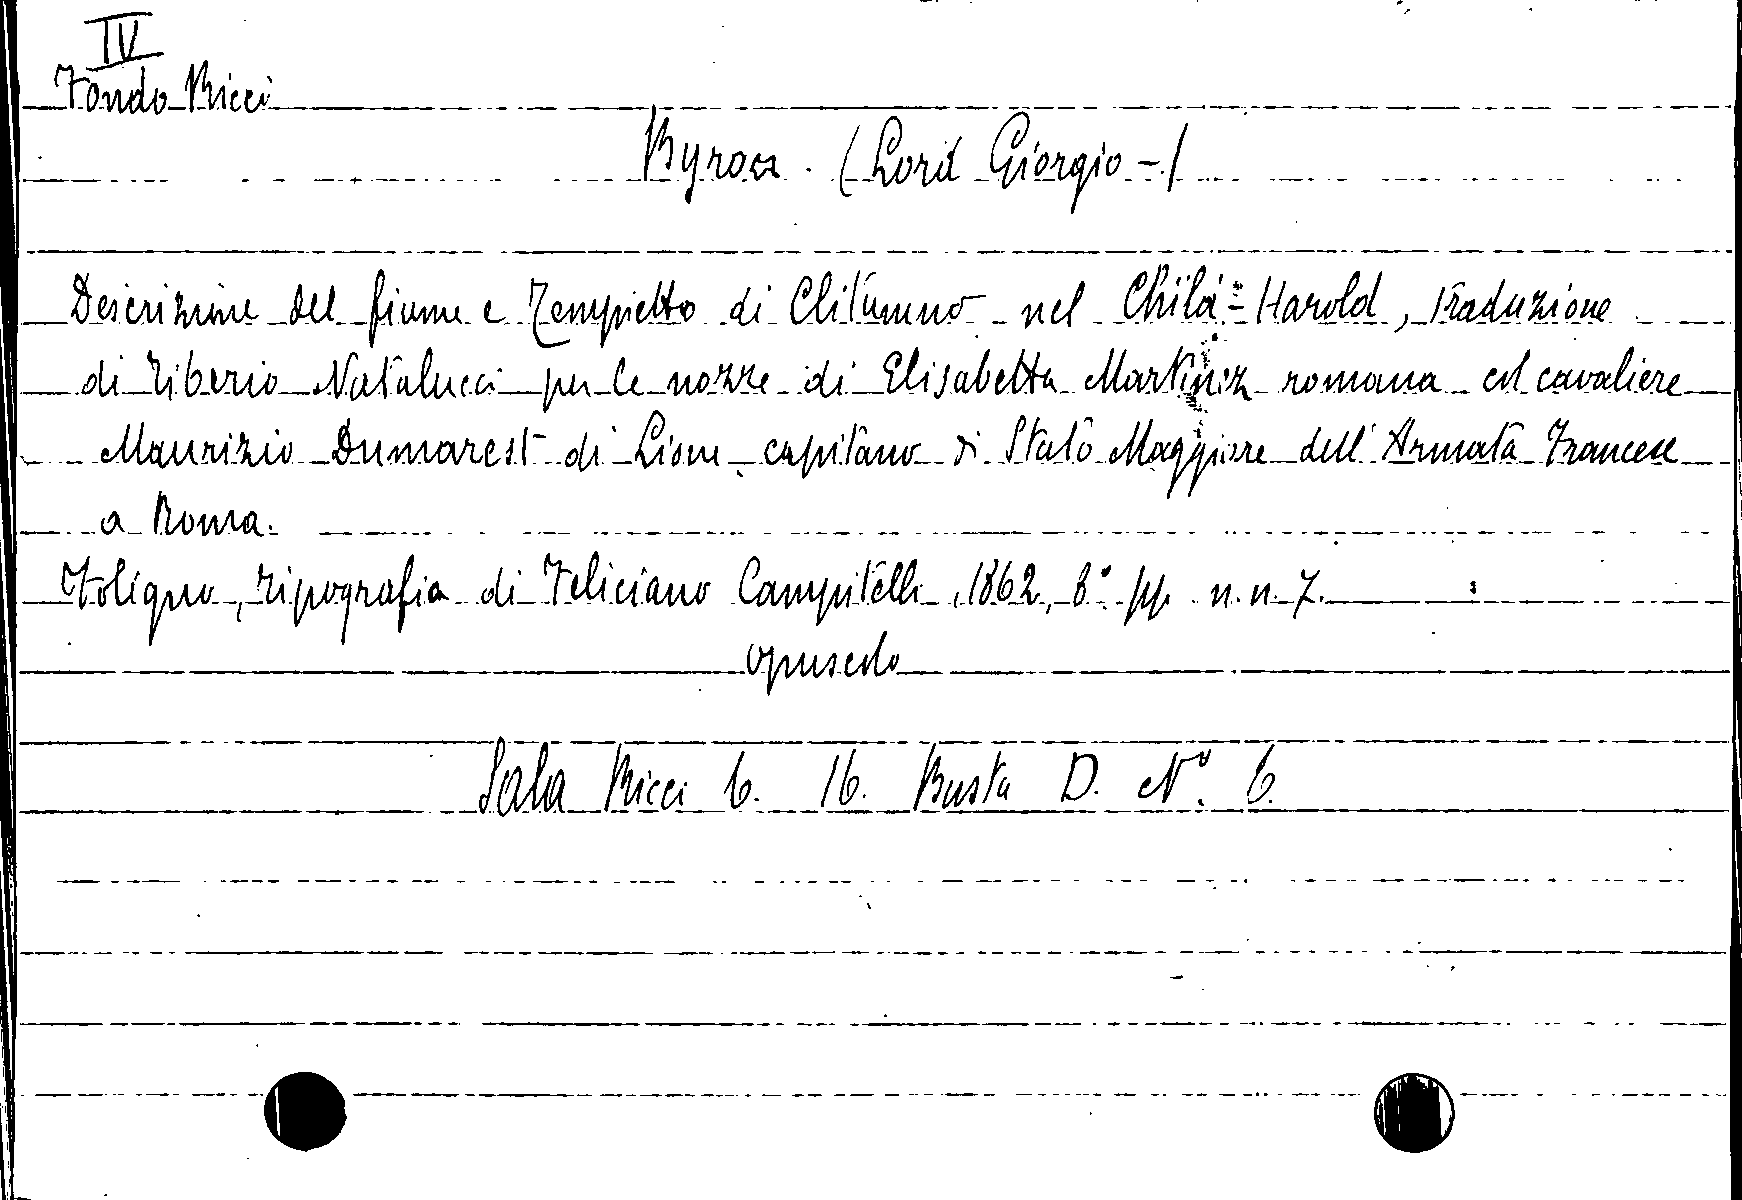 IV
Fondo Ricci
Byron. (Lord Giorgio -)
Descrizione del fiume e Tempietto di Clitumno nel Child-Harold, traduzione
di Tiberio Natalucci per le nozze di Elisabetta Martinez romana col cavaliere
Maurizio Dumarest di Lione capitano di Stato Maggiore dell'Armata Francese
a Roma.
Foligno, Tipografia di Feliciano Campitelli, 1862, 8° pp. n. n. 7.
opuscolo
Sala Ricci 6. 16. Busta D. N°. 6.